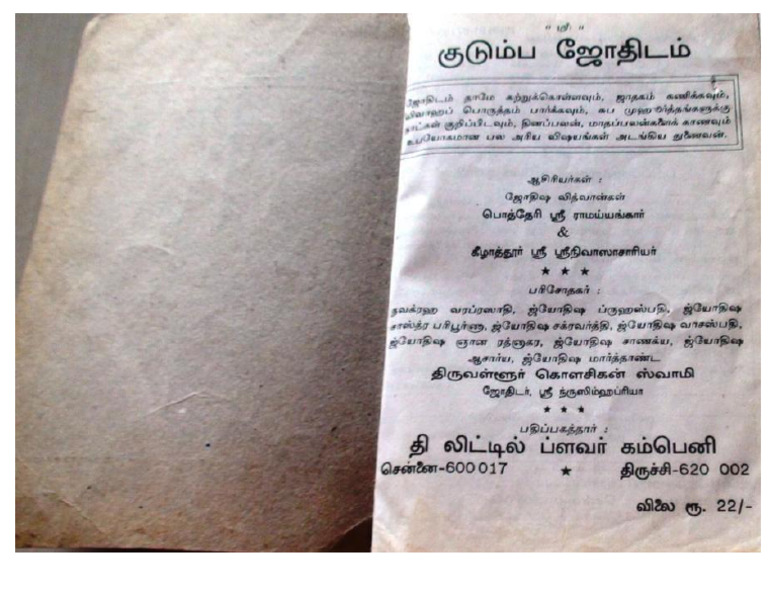 " ஸ்ரீ "
குடும்ப ஜோதிடம்
ஜோதிடம் தாமே கற்றுக்கொள்ளவும், ஜாதகம் கணிக்கவும்,
விவாஹப் பொருத்தம் பார்க்கவும், சுப முஹூர்த்தங்களுக்கு
நாட்கள் குறிப்பிடவும், தினப்பலன், மாதப்பலன்களைக் காணவும்
உபயோகமான பல அரிய விஷயங்கள் அடங்கிய துணைவன்.
ஆசிரியர்கள் :
ஜோதிஷ வித்வான்கள்
பொத்தேரி ஸ்ரீ ராமய்யங்கார்
&
கீழாத்தூர் ஸ்ரீ ஸ்ரீநிவாஸாசாரியர்
★ ★ ★
பரிசோதகர் :
நவக்ரஹ வரப்ரஸாதி, ஜ்யோதிஷ ப்ருஹஸ்பதி, ஜ்யோதிஷ
சாஸ்த்ர பரிபூர்ணா, ஜ்யோதிஷ சக்ரவர்த்தி, ஜ்யோதிஷ வாசஸ்பதி,
ஜ்யோதிஷ ஞான ரத்னாகர, ஜ்யோதிஷ சாணக்ய, ஜ்யோதிஷ
ஆசார்ய, ஜ்யோதிஷ மார்த்தாண்ட
திருவள்ளூர் கௌசிகன் ஸ்வாமி
ஜோதிடர், ஸ்ரீ ந்ருஸிம்ஹப்ரியா
★ ★ ★
பதிப்பகத்தார் :
தி லிட்டில் ப்ளவர் கம்பெனி
சென்னை-600 017 ★ திருச்சி-620 002
விலை ரூ. 22/-